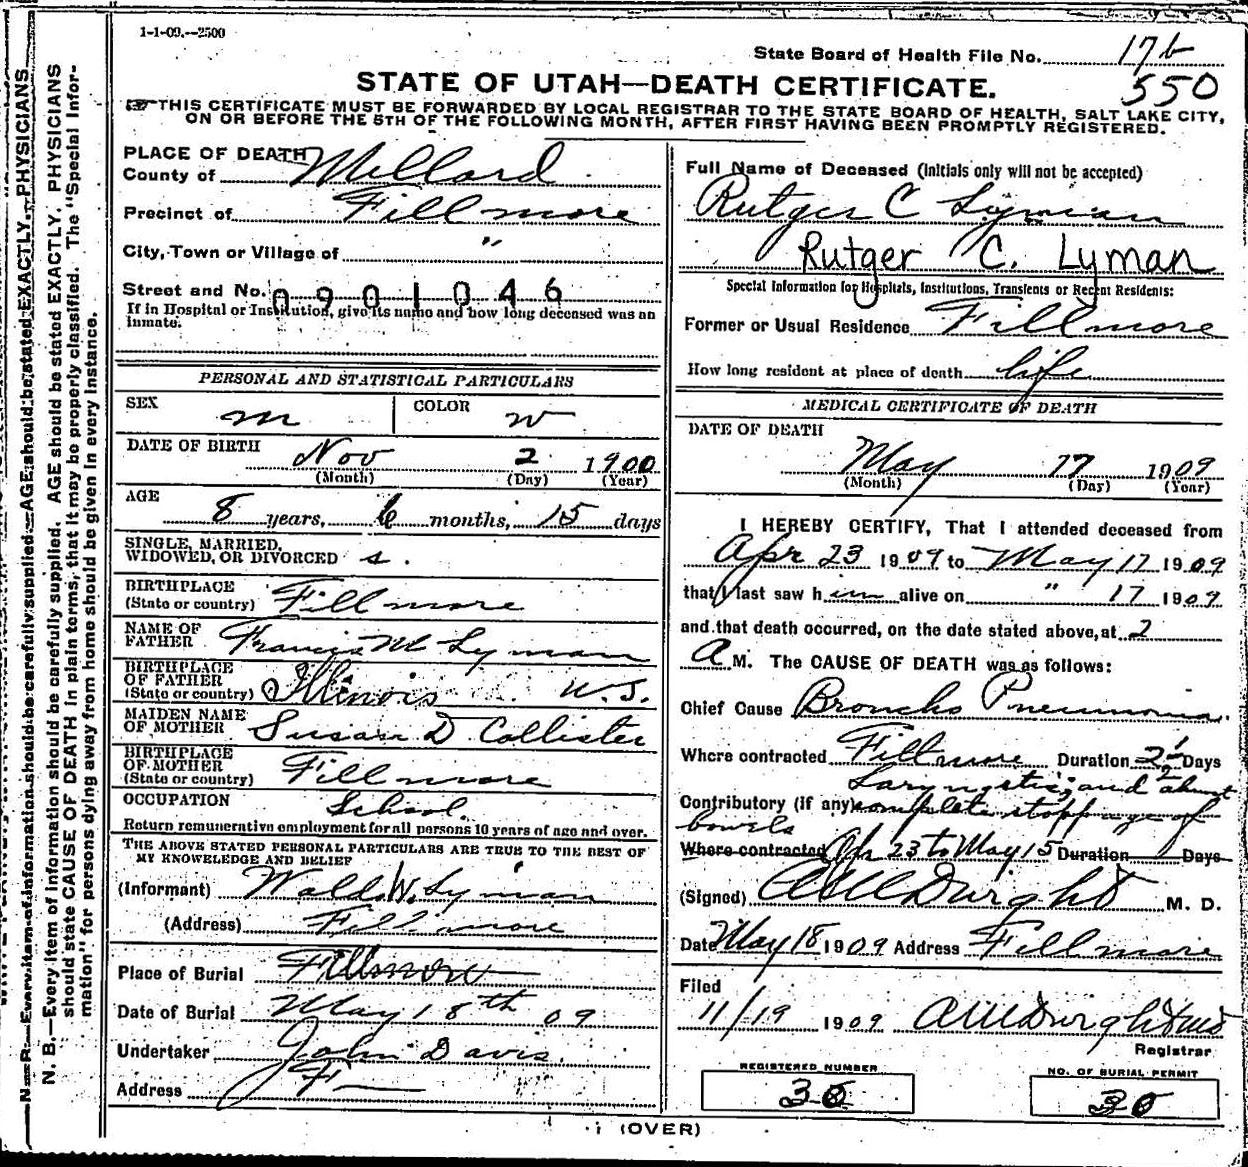 1-1-09.--2500
State Board of Health File No. 176
550
STATE OF UTAH—DEATH CERTIFICATE.
☞THIS CERTIFICATE MUST BE FORWARDED BY LOCAL REGISTRAR TO THE STATE BOARD OF HEALTH, SALT LAKE CITY,
ON OR BEFORE THE 5TH OF THE FOLLOWING MONTH, AFTER FIRST HAVING BEEN PROMPTLY REGISTERED.
PLACE OF DEATH
County of Millard
Precinct of Fillmore
City, Town or Village of "
Street and No. 0901046
If in Hospital or Institution, give its name and how long deceased was an
inmate.
PERSONAL AND STATISTICAL PARTICULARS
SEX m COLOR w
DATE OF BIRTH Nov 2 1900
(Month) (Day) (Year)
AGE
8 years, 6 months, 15 days
SINGLE, MARRIED,
WIDOWED, OR DIVORCED s.
BIRTHPLACE
(State or country) Fillmore
NAME OF
FATHER Francis M Lyman
BIRTHPLACE
OF FATHER
(State or country) Illinois U.S.
MAIDEN NAME
OF MOTHER Susan D Collister
BIRTHPLACE
OF MOTHER
(State or country) Fillmore
OCCUPATION School.
Return remunerative employment for all persons 10 years of age and over.
THE ABOVE STATED PERSONAL PARTICULARS ARE TRUE TO THE BEST OF
MY KNOWLEDGE AND BELIEF
(Informant) Waldo W. Lyman
(Address) Fillmore
Place of Burial Fillmore
Date of Burial May 18th 09
Undertaker John Davis.
Address F
Full Name of Deceased (Initials only will not be accepted)
Rutger C Lyman
Rutger C. Lyman
Special Information for Hospitals, Institutions, Transients or Recent Residents:
Former or Usual Residence Fillmore
How long resident at place of death life
MEDICAL CERTIFICATE OF DEATH
DATE OF DEATH
May 17 1909
(Month) (Day) (Year)
I HEREBY CERTIFY, That I attended deceased from
Apr 23 1909 to May 17 1909
that I last saw him alive on " 17 1909
and that death occurred, on the date stated above, at 2
A M. The CAUSE OF DEATH was as follows:
Chief Cause Broncho Pneumonia.
Where contracted Fillmore Duration 2½ Days
Laryngitis; and almost
Contributory (if any) complete stoppage of
bowels
Where contracted Apr 23 to May 15 Duration Days
(Signed) Dwight M. D.
Date May 18 1909 Address Fillmore
Filed
11/19 1909 Dwight md
Registrar
REGISTERED NUMBER
30
NO. OF BURIAL PERMIT
30
(OVER)
N. B.—Every item of information should be carefully supplied. AGE should be stated EXACTLY. PHYSICIANS
should state CAUSE OF DEATH in plain terms, that it may be properly classified. The "Special Infor-
mation" for persons dying away from home should be given in every instance.
N. B.—Every item of information should be carefully supplied. AGE should be stated EXACTLY. PHYSICIANS